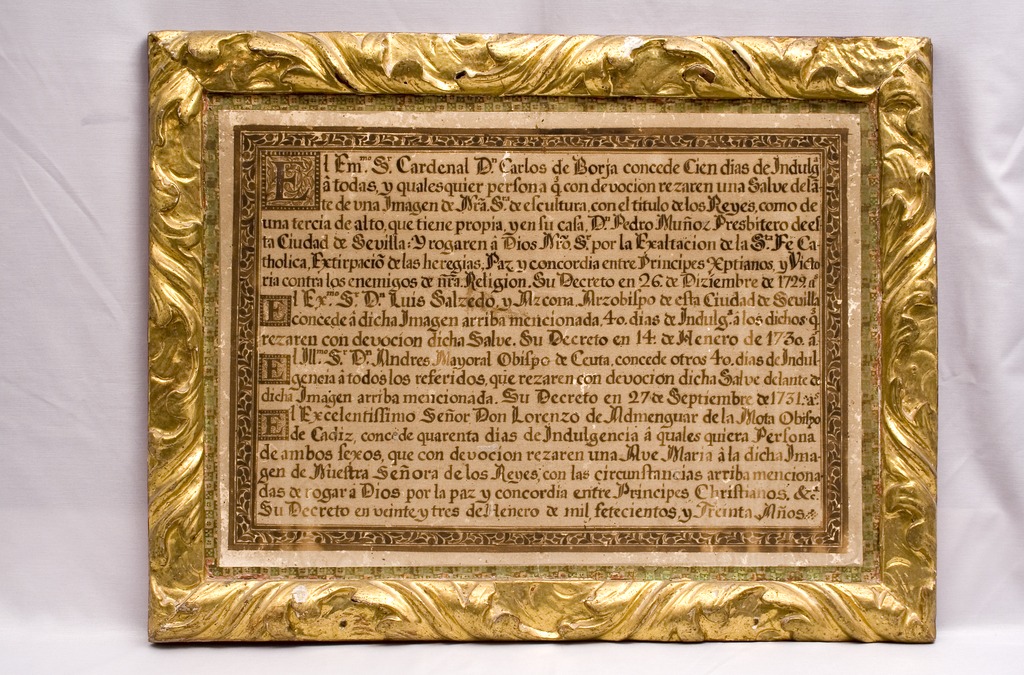 El Em.mo S.r Cardenal D.n Carlos de Borja concede Cien dias de Indulg.s
â todas, y qualesquier persona q̃. con devocion rezaren una Salve delã
te de vna Imagen de Nrã. S.ra de escultura, con el titulo de los Reyes, como de
una tercia de alto, que tiene propia, y en su casa, D.n Pedro Muñoz Presbitero de es
ta Ciudad de Sevilla: Y rogaren â Dios Nrõ. S.r por la Exaltacion de la S.ta Fè Ca-
tholica, Extirpaciõ de las heregias, Paz y concordia entre Principes Xptianos, y Victo
ria contra los enemigos de nrã. Religion. Su Decreto en 26. de Diziembre de 1729. a.s
El Ex.mo S.r D.n Luis Salzedo, y Azcona, Arzobispo de esta Ciudad de Sevilla
concede â dicha Imagen arriba mencionada, 40. dias de Indulg.s â los dichos q̃.
rezaren con devocion dicha Salve. Su Decreto en 14. de Henero de 1730. a.
El Ill.mo S.r D.n Andres Mayoral Obispo de Ceuta, concede otros 40. dias de Indul-
gencia â todos los referidos, que rezaren con devocion dicha Salve delante de
dicha Imagen arriba mencionada. Su Decreto en 27 de Septiembre de 1731. a.s
El Excelentissimo Señor Don Lorenzo de Admenguar de la Mota Obispo
de Cadiz, concede quarenta dias de Indulgencia â quales quiera Persona
de ambos sexos, que con devocion rezaren una Ave Maria â la dicha Ima-
gen de Nuestra Señora de los Reyes, con las circunstancias arriba menciona
das de rogar â Dios por la paz y concordia entre Principes Christianos, &c.a
Su Decreto en veinte y tres de Henero de mil, setecientos, y Treinta Años.